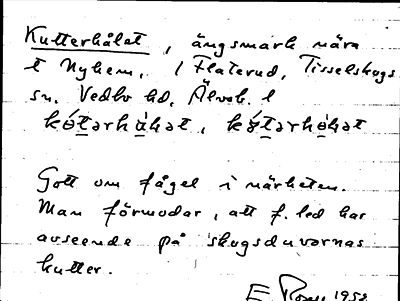 Kutterhålet, ängsmark nära
t Nyhem, i Flaterud, Tisselskogs
sn. Vedbo hd, Älvsb. l
Gott om fågel i närheten.
Man förmodar, att f. led har
avseende på skogsduvornas
kutter.
E. 1952